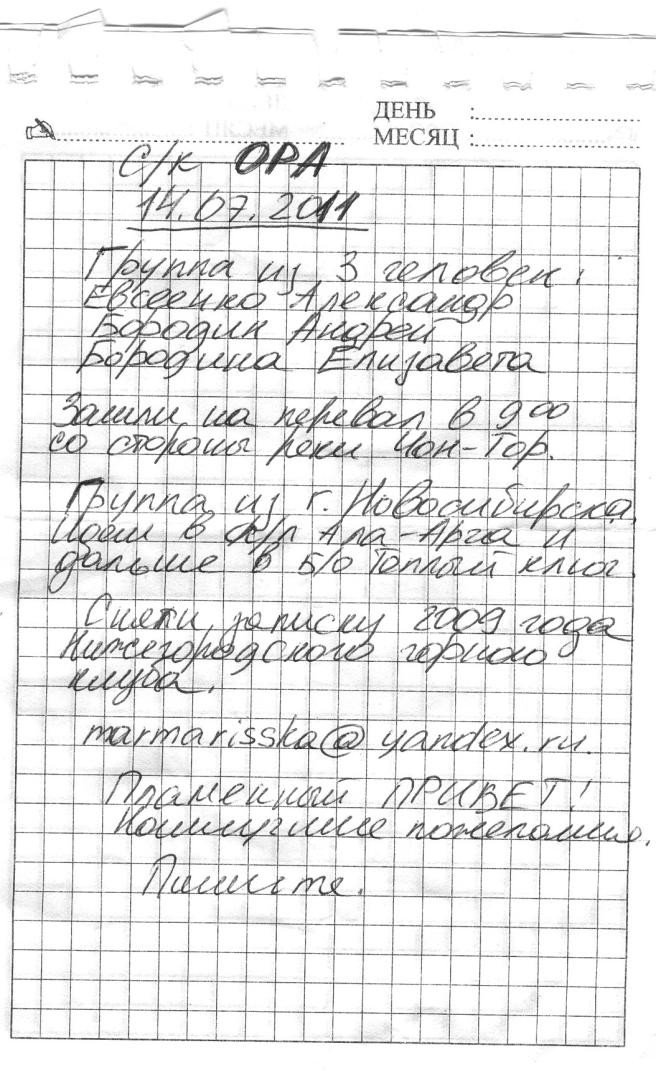 ДЕНЬ :
МЕСЯЦ :
С/к ОРА
14.07.2011
Группа из 3 человек:
Евсеенко Александр
Бородин Андрей
Бородина Елизавета
Зашли на перевал в 9 00
со стороны реки Чон-Тор.
Группа из г. Новосибирска.
Идем в а/л Ала-Арча и
дальше в Б/О Теплый ключ.
Сняли записку 2009 года
Нижегородского горного
клуба.
marmarisska@yandex.ru.
Пламенный ПРИВЕТ!
Наилучшие пожелания.
Пишите.